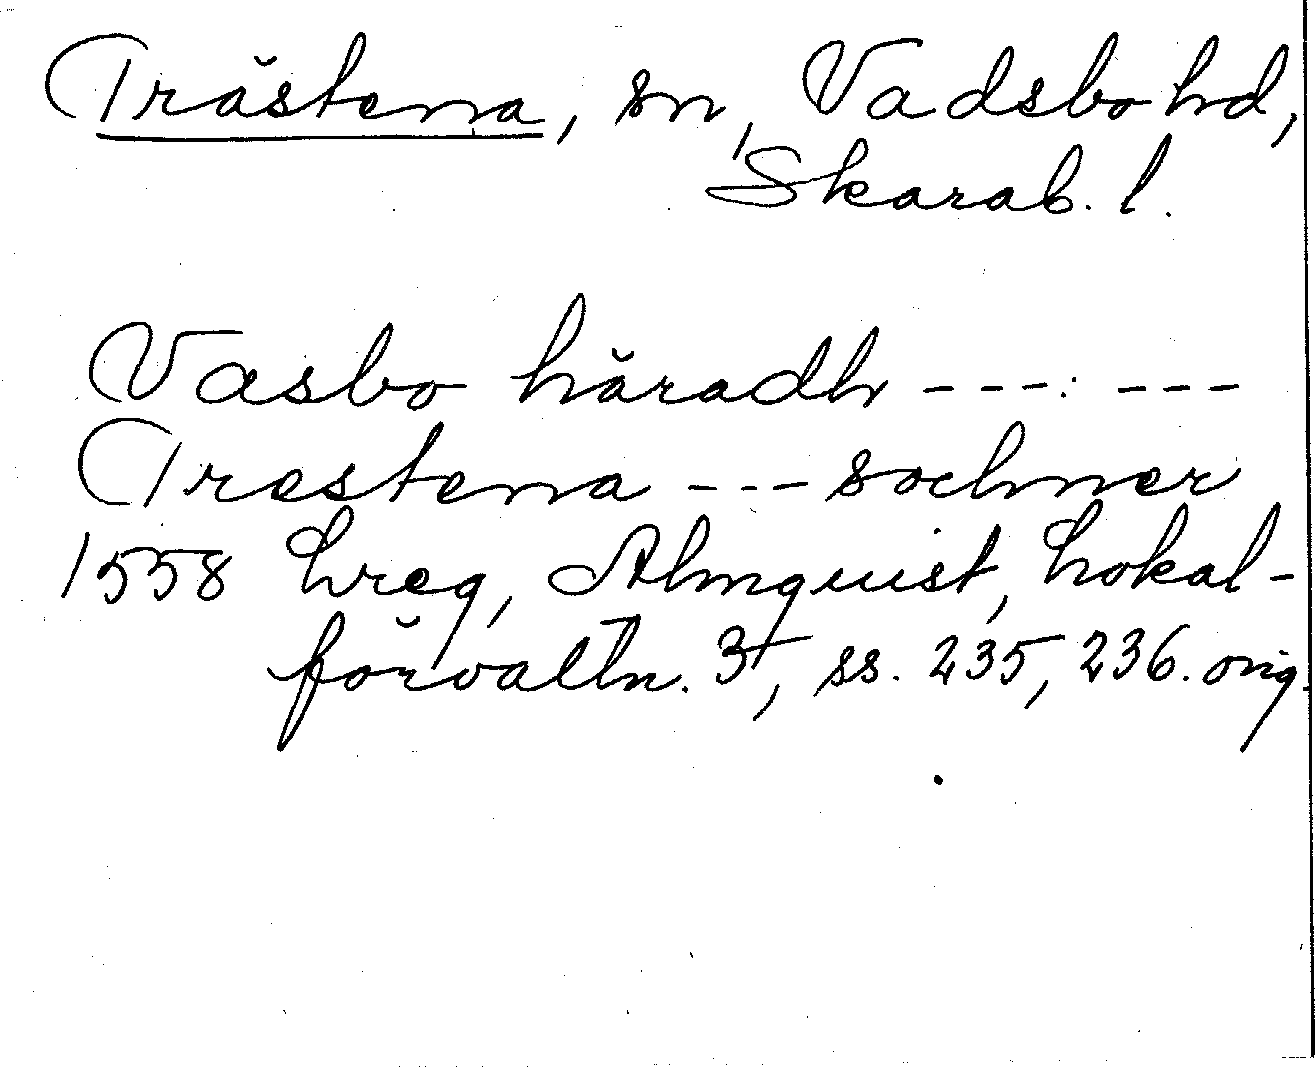 Trästena, sn, Vadsbo hd,
Skarab. l.
Vasbo häradh ---: ---
Trestena --- sochner
1558 Lreg, Almquist, Lokal-
förvaltn. 3, ss. 235, 236. orig.